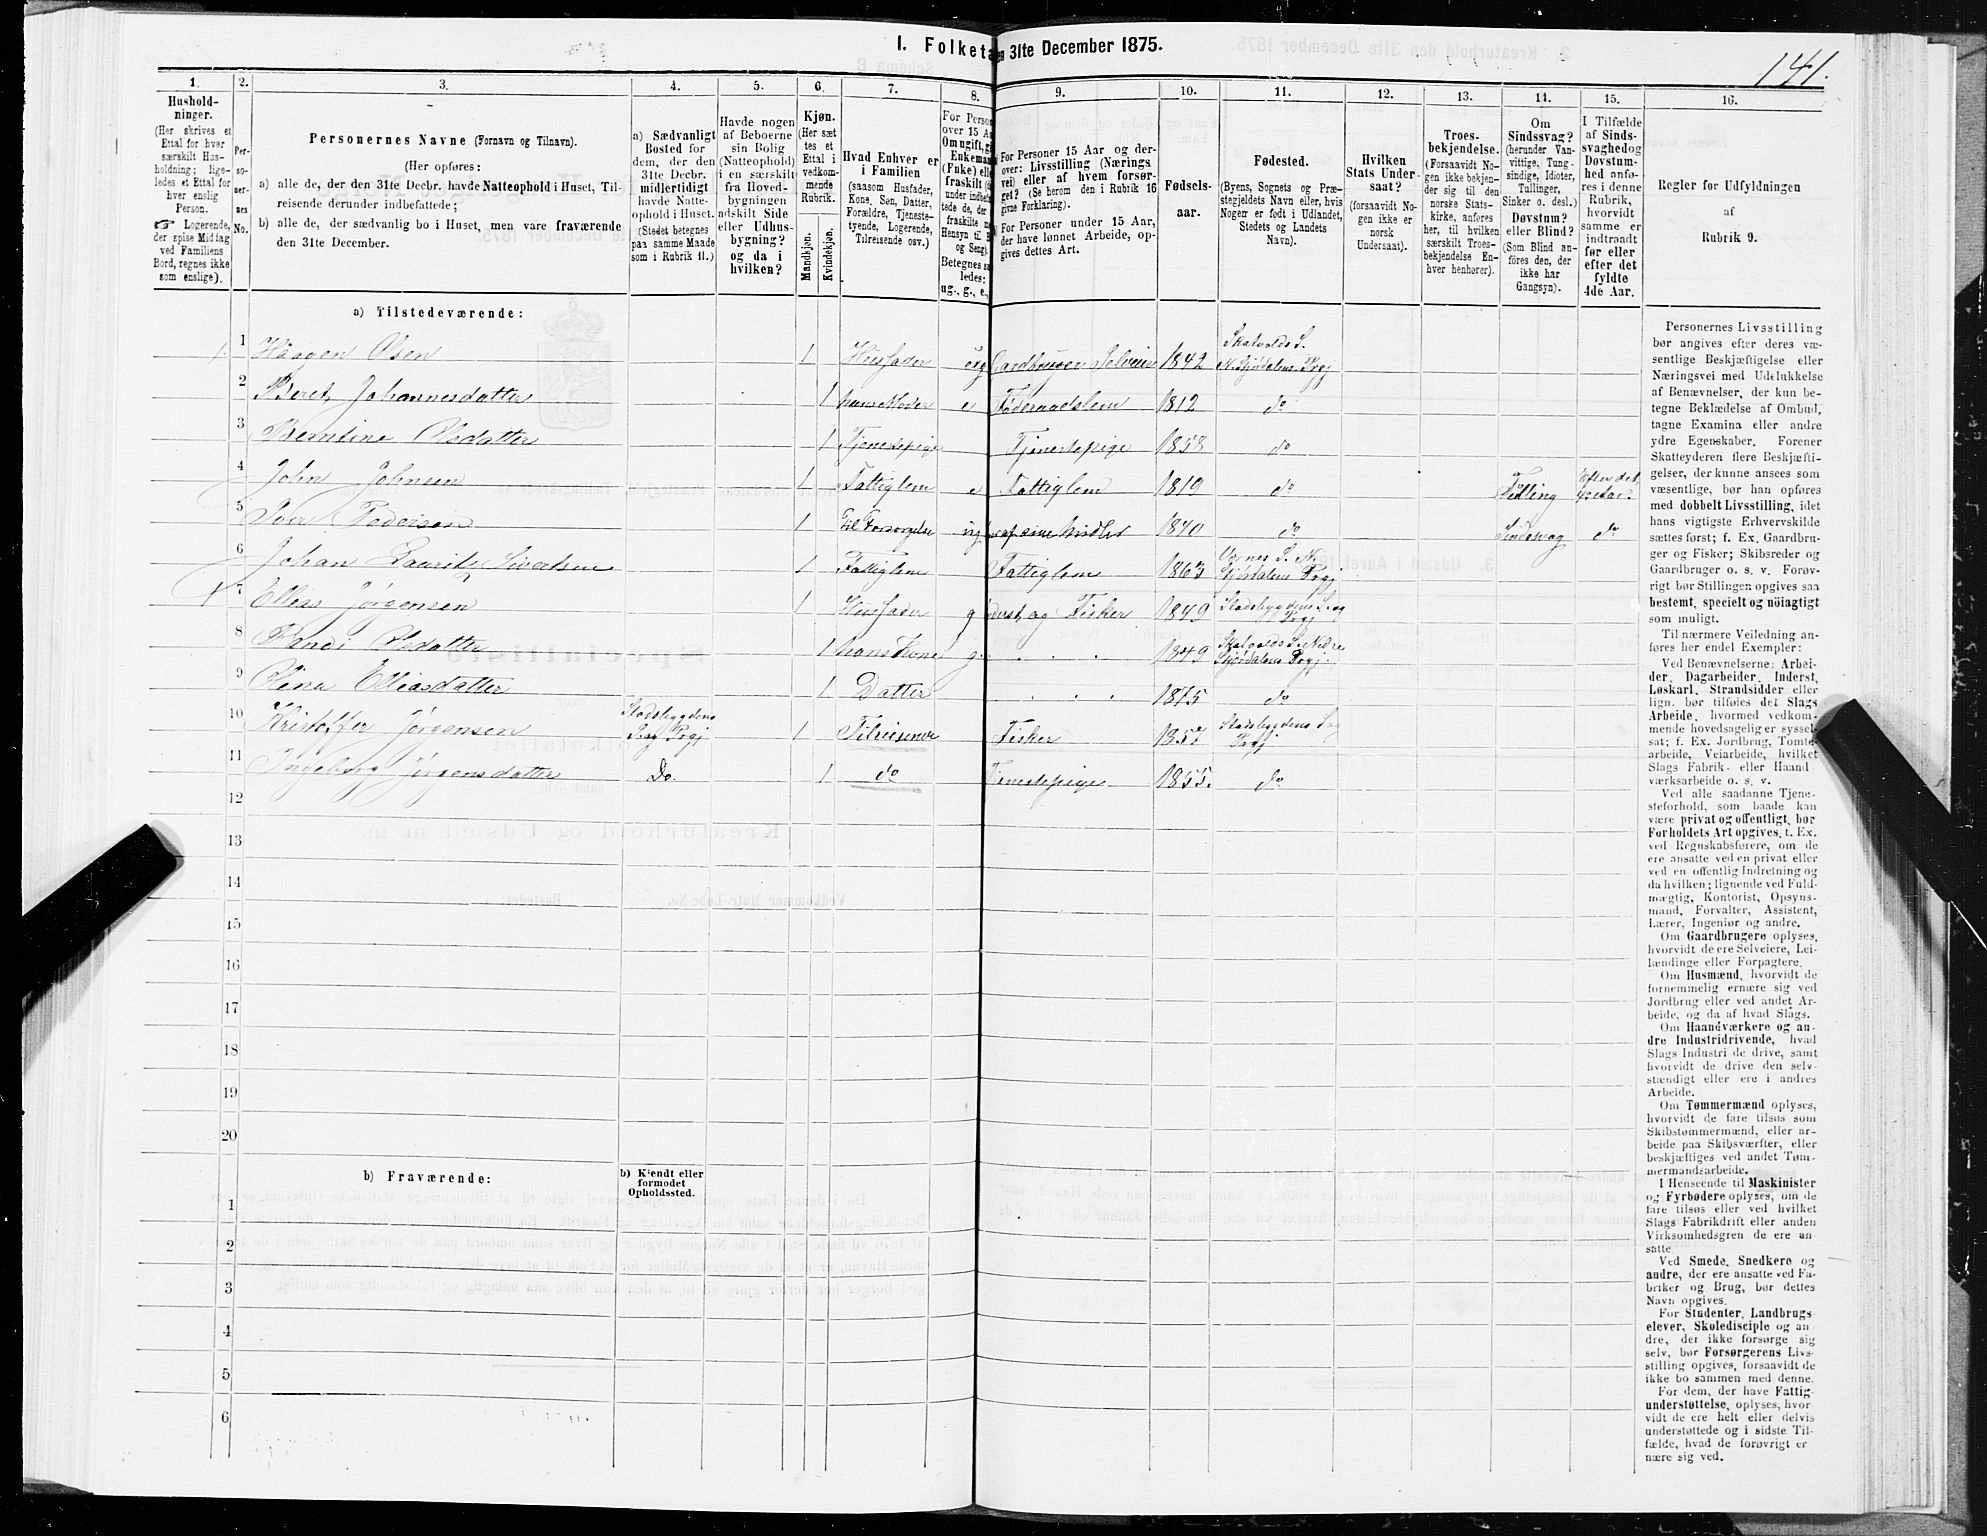 I. Folketa 31te December 1875.
141.
1.
2.
3.
4.
5.
6.
7.
8.
9.
10.
11.
12.
13.
14.
15.
16.
Hushold-
ninger.
(Her skrives et
Ettal for hver
særskilt Hus-
holdning; lige-
ledes et Ettal for
hver enslig
Person.
Logerende,
der spise Middag
ved Familiens
Bord, regnes ikke
som enslige).
Per-
soner-
nes
No.
Personernes Navne (Fornavn og Tilnavn).
(Her opføres:
a) alle de, der den 31te Decbr. havde Natteophold i Huset, Til-
reisende derunder indbefattede;
b) alle de, der sædvanlig bo i Huset, men vare fraværende
den 31te December.
a) Sædvanligt
Bosted for
dem, der den
31te Decbr.
midlertidigt
havde Natte-
ophold i Huset.
(Stedet betegnes
paa samme Maade
som i Rubrik 11.)
Havde nogen
af Beboerne
sin Bolig
(Natteophold)
i en særskilt
fra Hoved-
bygningen
adskilt Side
eller Udhus-
bygning?
og da i
hvilken?
Kjøn.
(Her sæt
tes et
Ettal i
vedkom-
mende
Rubrik.
Mandkjøn.
Kvindekjøn.
Hvad Enhver er
i Familien
(saasom Husfader,
Kone, Søn, Datter,
Forældre, Tjeneste-
tyende, Logerende,
Tilreisende osv.)
For Person
over 15 Aa
Om ugift, gi
Enkeman
(Enke) elle
fraskilt
under indbefat
tede de, der
fraskilte m
Hensyn til B
og Seng).
Betegnes sa
ledes:
ug., g., e.,
For Personer 15 Aar og der-
over: Livsstilling (Nærings
vei) eller af hvem forsør-
get? (Se herom den i Rubrik 16
givne Forklaring).
For Personer under 15 Aar,
der have lønnet Arbeide, op-
gives dettes Art.
Fødsels-
aar.
Fødested.
(Byens, Sognets og Præ-
stegjeldets Navn eller, hvis
Nogen er født i Udlandet,
Stedets og Landets
Navn).
Hvilken
Stats Under-
saat?
(forsaavidt No-
gen ikke er
norsk
Undersaat).
Troes-
bekjendelse.
(Forsaavidt No-
gen ikke bekjen-
der sig til den
norske Stats-
kirke, anføres
her, til hvilken
særskilt Troes-
bekjendelse En-
hver henhører).
Om
Sindssvag?
(herunder Van-
vittige, Tung-
sindige, Idioter,
Tullinger,
Sinker o. desl.)
Døvstum?
eller Blind?
(Som Blind an-
føres den, der
ikke har
Gangsyn).
I Tilfælde
af Sinds-
svaghed og
Døvstum-
hed anfø-
res i denne
Rubrik,
hvorvidt
samme er
indtraadt
før eller
efter det
fyldte
4de Aar.
Regler for Udfyldningen
af
Rubrik 9.
a) Tilstedeværende:
1 1 Haagen Olsen 1 Husfader ug Gardbruger Selveier 1842 Skatvolds S. N. Stjørdalens Prgj
2 Beret Johannesdatter 1 hans Moder e Føderaadslem 1812 do
3 Berntine Olsdatter 1 Tjenestepige Tjenestepige 1858 do
4 John Johnsen 1 Fattiglem e Fattiglem 1819 do Tulling Efter det 4de Aar
5 Iver Pedersen 1 Til Forsørgelse ug af sine Midler 1840 do Sindsvag do
6 Johan Laurits Sivertsen 1 Fattiglem Fattiglem 1863 Værnes S. N. Stjørdalens Prgj
1 7 Ellias Jørgensen 1 Husfader g Inderst og Fisker 1849 Stadsbygdens S. og Prgj
8 Randi Olsdatter 1 hans Kone g. 1849 Skatvolds S. Nedre Stjørdalens Prgj.
9 Olena Elliasdatter 1 Datter 1875 do
10 Kristoffer Jørgensen Stadsbygdens S. og Prgj 1 Tilreisende Fisker 1857 Stadsbygdens S. og Prgj
11 Ingeborg Jørgensdatter Do. 1 do Tjenestepige 1855. do
12
13
14
15
16
17
18
19
20
b) Fraværende:
b) Kjendt eller
formodet
Opholdssted.
1
2
3
4
5
6
Personernes Livsstilling
bør angives efter deres væ-
sentlige Beskjæftigelse eller
Næringsvei med Udelukkelse
af Benævnelser, der kun be-
tegne Beklædelse af Ombud,
tagne Examina eller andre
ydre Egenskaber. Forener
Skatteyderen flere Beskjæfti-
gelser, der kunne ansees som
væsentlige, bør han opføres
med dobbelt Livsstilling, idet
hans vigtigste Erhvervskilde
sættes først; f. Ex. Gaardbru-
ger og Fisker; Skibsreder og
Gaardbruger o. s. v. Forøv-
rigt bør Stillingen opgives saa
bestemt, specielt og nöiagtigt
som muligt.
Til nærmere Veiledning an-
føres her endel Exempler:
Ved Benævnelserne: Arbei-
der, Dagarbeider, Inderst,
Løskarl, Strandsidder eller
lign. bør tilføies det Slags
Arbeide, hvormed vedkom-
mende hovedsagelig er syssel-
sat; f. Ex. Jordbrug, Tomte-
arbeide, Veiarbeide, hvilket
Slags Fabrik- eller Haand
værksarbeide o. s. v.
Ved alle saadanne Tjene-
steforhold, som baade kan
være privat og offentligt, bør
Forholdets Art opgives, t. Ex.
ved Regnskabsførere, om de
ere ansatte ved en privat eller
ved en offentlig Indretning og
da hvilken; lignende ved Fuld-
mægtig, Kontorist, Opsyns-
mand, Forvalter, Assistent,
Lærer, Ingeniør og andre.
Om Gaardbrugere oplyses,
hvorvidt de ere Selveiere, Lei-
lændinge eller Forpagtere.
Om Husmænd, hvorvidt de
fornemmelig ernære sig ved
Jordbrug eller ved andet Ar-
beide, og da af hvad Slags.
Om Haandværkere og an-
dre Industridrivende, hvad
Slags Industri de drive, samt
hvorvidt de drive den selv-
stændigt eller ere i andres
Arbeide.
Om Tømmermænd oplyses,
hvorvidt de fare tilsøs som
Skibstømmermænd, eller ar-
beide paa Skibsværfter, eller
beskjæftiges ved andet Tøm-
mermandsarbeide.
I Henseende til Maskinister
og Fyrbødere oplyses, om de
fare tilsøs eller ved hvilket
Slags Fabrikdrift eller anden
Virksomhedsgren de ere an-
satte
Ved Smede, Snedkere og
andre, der ere ansatte ved Fa-
briker og Brug, bør dettes
Navn opgives.
For Studenter, Landbrugs
elever, Skoledisciple og an
dre, der ikke forsørge sig
selv, bør Forsørgerens Livs-
stilling opgives, forsaavidt de
ikke bo sammen med denne.
For dem, der have Fattig-
understøttelse, oplyses, hvor
vidt de ere helt eller delvis
understøttede og i sidste Til-
fælde, hvad de forøvrigt er
nære sig ved.